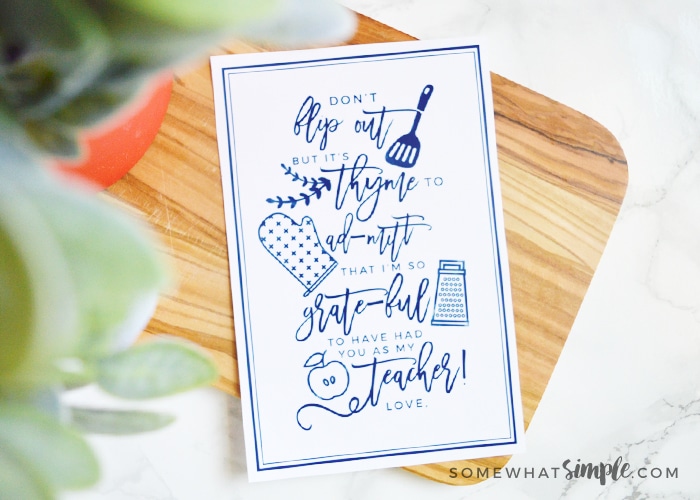 DON'T
flip out
BUT IT'S
thyme TO
ad-mitt
THAT I'M SO
grate-ful
TO HAVE HAD
YOU AS MY
teacher!
LOVE,
SOMEWHATSimple.COM